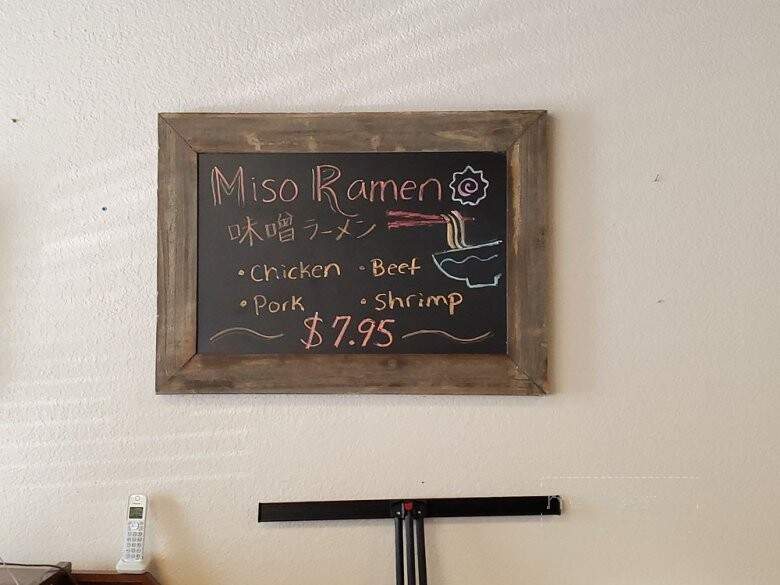 Miso Ramen
味噌ラーメン
• Chicken • Beef
• Pork • Shrimp
$7.95